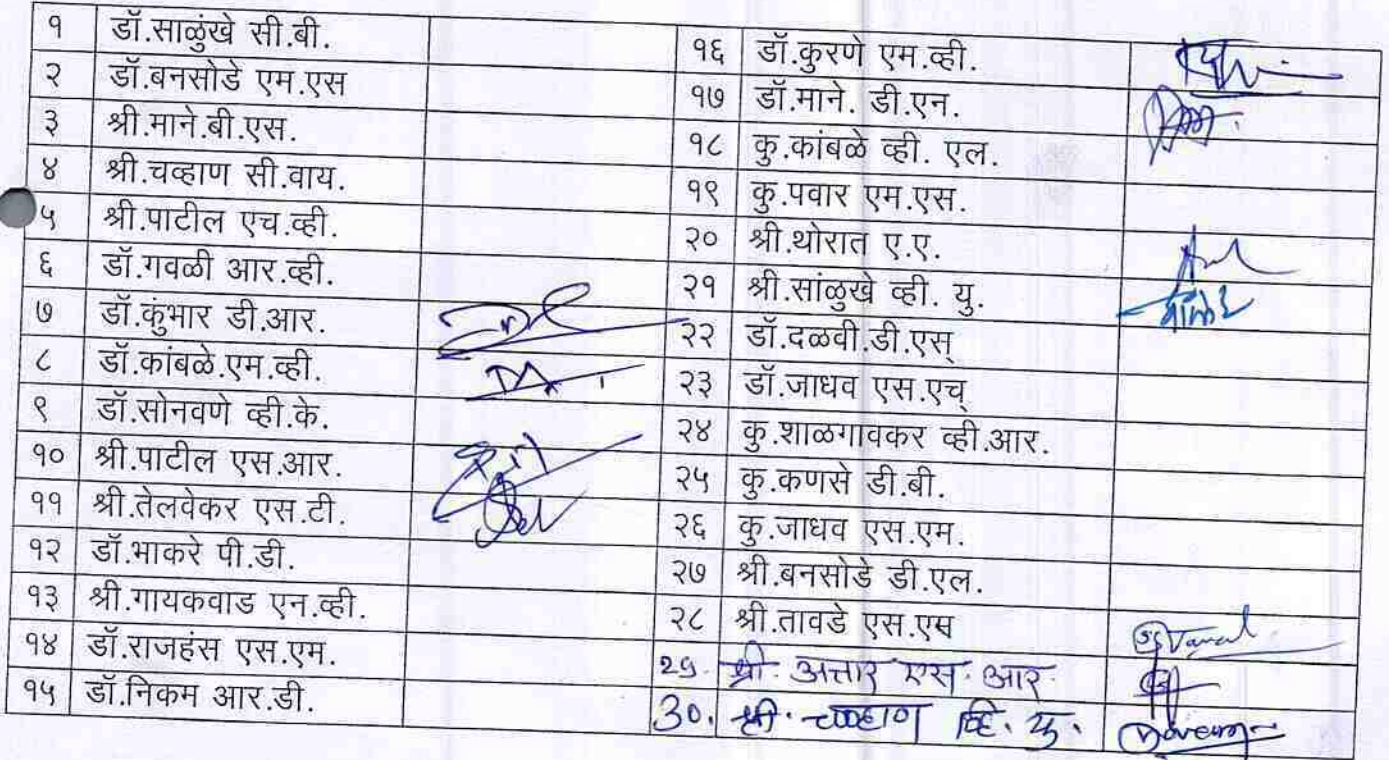 १ डॉ.साळुंखे सी.बी.
२ डॉ.बनसोडे एम.एस
३ श्री.माने.बी.एस.
४ श्री.चव्हाण सी.वाय.
५ श्री.पाटील एच.व्ही.
६ डॉ.गवळी आर.व्ही.
७ डॉ.कुंभार डी.आर.
८ डॉ.कांबळे.एम.व्ही.
९ डॉ.सोनवणे व्ही.के.
१० श्री.पाटील एस.आर.
११ श्री.तेलवेकर एस.टी.
१२ डॉ.भाकरे पी.डी.
१३ श्री.गायकवाड एन.व्ही.
१४ डॉ.राजहंस एस.एम.
१५ डॉ.निकम आर.डी.
१६ डॉ.कुरणे एम.व्ही.
१७ डॉ.माने. डी.एन.
१८ कु.कांबळे व्ही. एल.
१९ कु.पवार एम.एस.
२० श्री.थोरात ए.ए.
२१ श्री.सांळुखे व्ही. यु.
२२ डॉ.दळवी.डी.एस्
२३ डॉ.जाधव एस.एच्
२४ कु.शाळगावकर व्ही.आर.
२५ कु.कणसे डी.बी.
२६ कु.जाधव एस.एम.
२७ श्री.बनसोडे डी.एल.
२८ श्री.तावडे एस.एस
29. श्री. अत्तार एस. आर.
30. श्री. चव्हाण व्हि. यु.